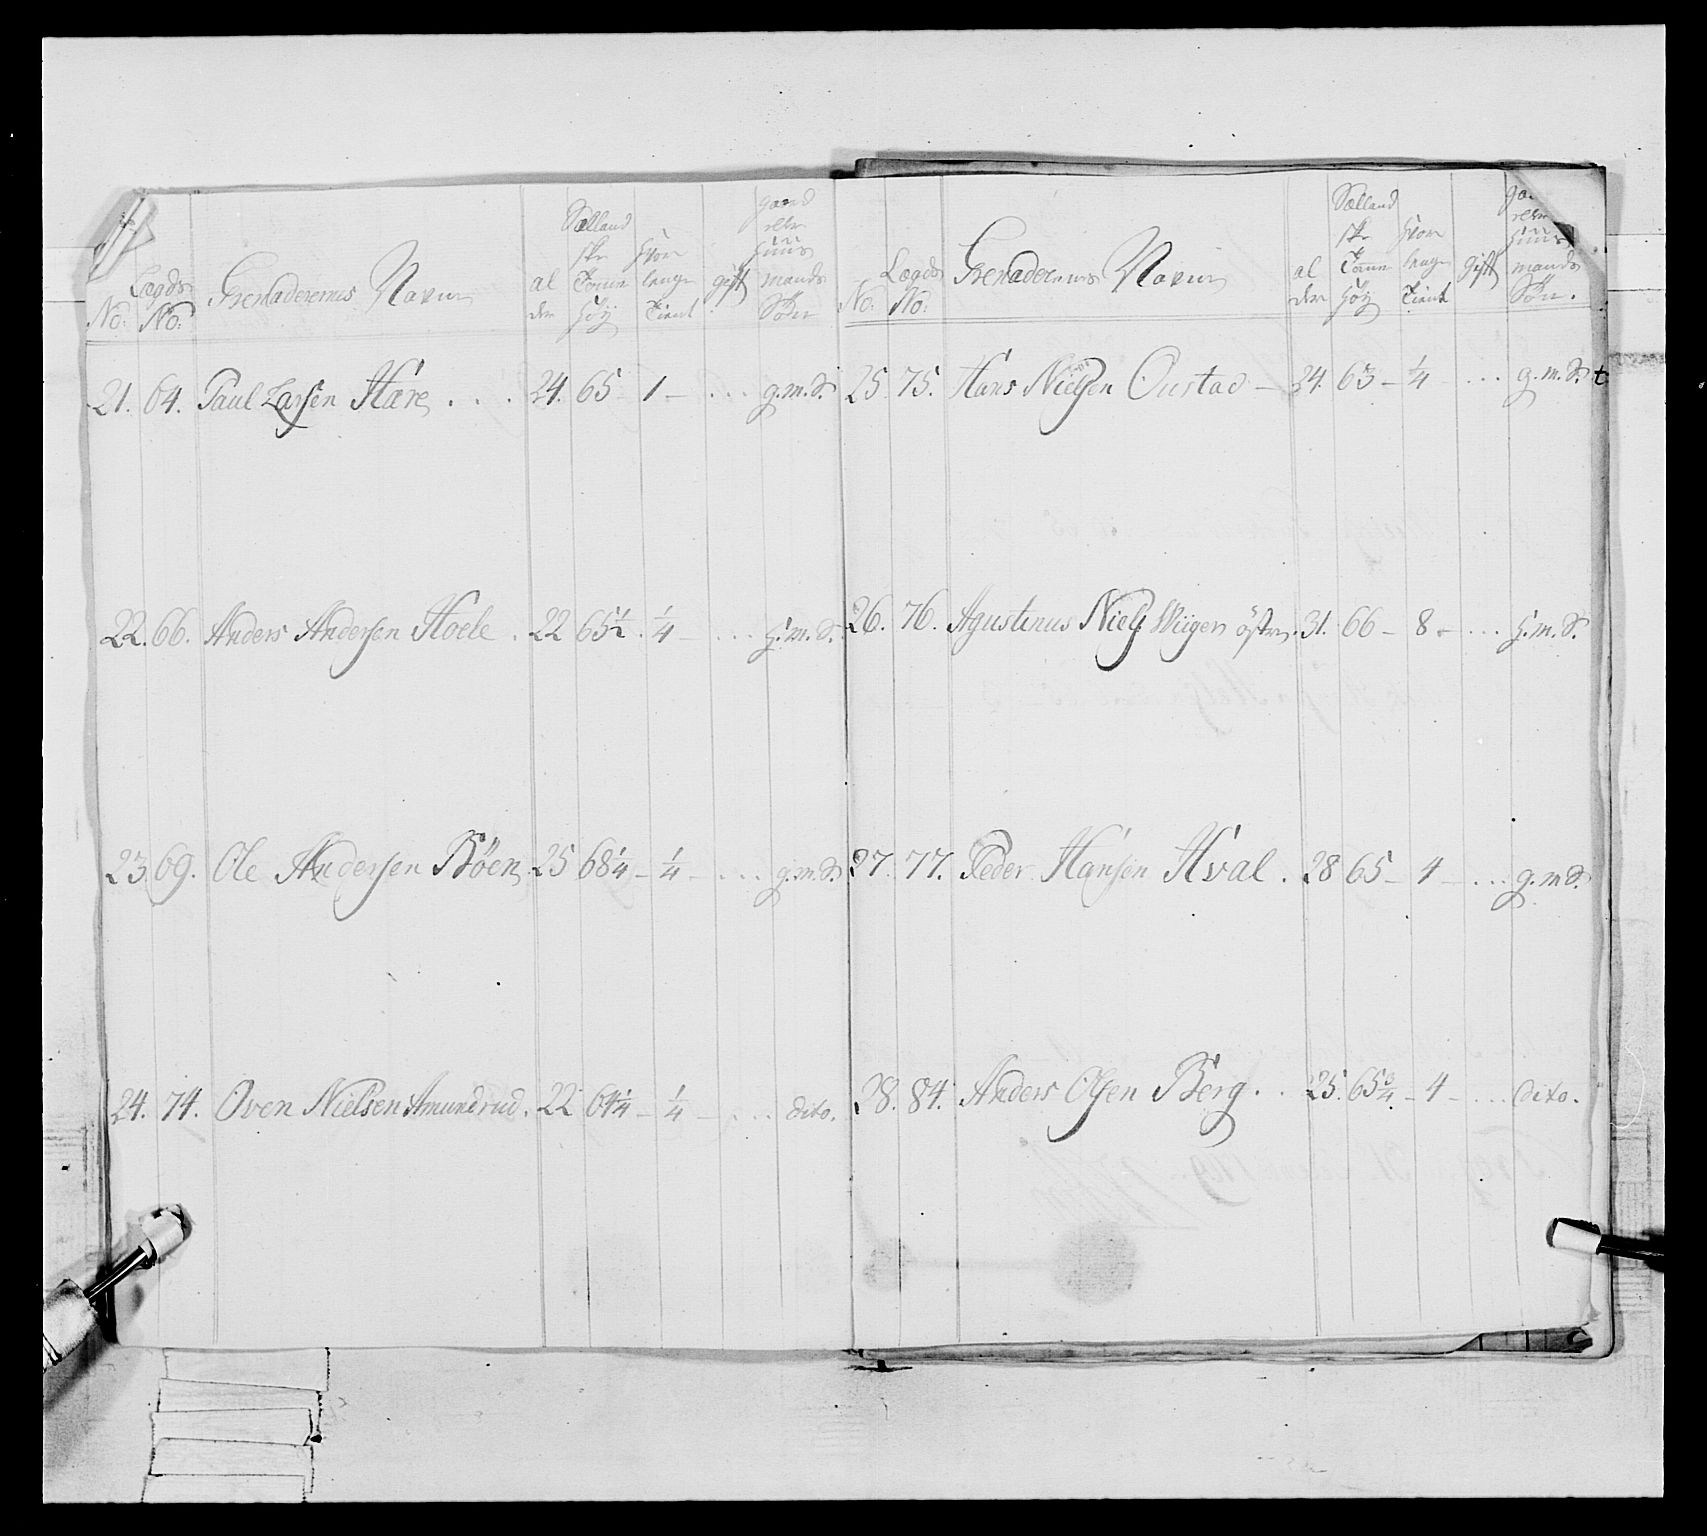 No: Lægds No: Grenaderernes Navne al der Sællandske Tomme høy hvor lenge Tient gift gaard eller huusmands Søn
21. 64. Paul Larsen Hære . . . 24. 65 - 1 - . . . g.m.S.
22. 66. Anders Andersen Hoele . 22 65½ . ¼ - . . . h.m.S.
23. 69. Ole Andersen Böen . 25 68¼ - ¼ - . . . g.m.S.
24. 74. Oven Nielsen Amundrud . 22 64¼ - ¼ - . . . dito.
No: Lægds No: Grenaderernes Navne al der Sællandske Tomme høy hvor lenge Tient gift eller huusmands Søn.
25. 75. Hans Nielsen Oustad - 24. 63 - ¼ - . . . g.m.S. t
26. 76. Agustinus Niels Wiigen östre . 31. 66 - 8 - . . . h.m.S.
27. 77. Peder Hansen Hval . 28 65 - 4 - . . . g.m.S.
28. 84. Anders Olsen Berg . . 25. 65¾ - 4 - . . . dito.